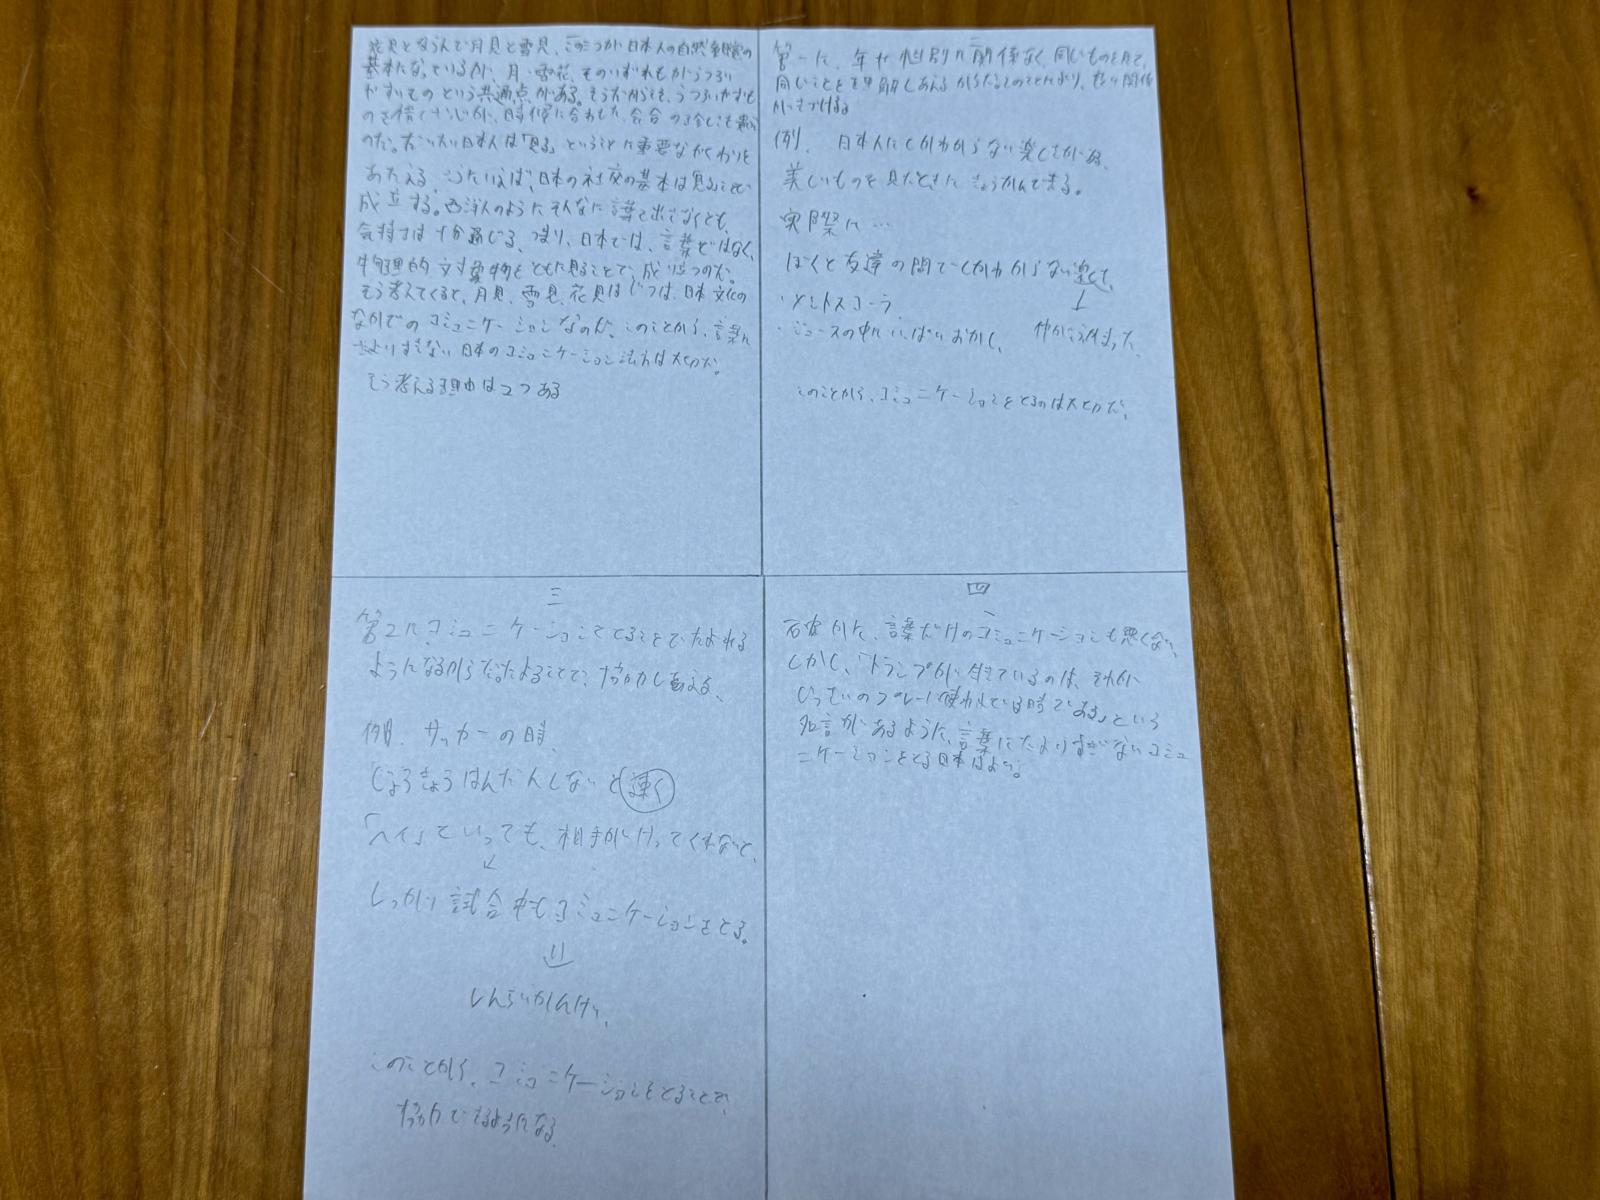 花見とならんで月見と雪見、この三つが日本人の自然観賞の
基本になっているが、月、雪、花、そのいずれもがうつろい
やすいものという共通点がある。そうだからこそ、うつろいやすいも
のを惜しむ心が、時候に合わせた会合の
のだ。だいたい日本人は「見る」ということに重要なかかわりを
あたえる。そういえば、日本の社交の基本は見ることで
成立する。西洋人のようにそんなに言葉で出さなくとも、
気持ちは十分通じる。つまり、日本では、言葉ではなく、
物理的対象物をともに見ることで、成り立つのだ。
そう考えてくると、月見、雪見、花見はじつは、日本文化の
なかでのコミュニケーションなのだ。このことから、言葉に
たよりすぎない日本のコミュニケーション法は大切だ。
そう考える理由は2つある
二
第一に、年や性別に関係なく、同じものを見て、
同じことを理解しあえるからだ。このことにより、関係
がきづける
例、日本人にしかわからない楽しさがある、
美しいものを見たときにきょうかんできる。
実際に…
ぼくと友達の間でしかわからない楽しさ、
・メントスコーラ
・ジュースの中にいっぱいおかし、 仲がふかまった、
このことから、コミュニケーションをとるのは大切だ、
三
第2に、コミュニケーションをとることでたよれる
ようになるからだ。たよることで、協力しあえる、
例、サッカーの時、
じょうきょうはんだんしないと
「ヘイ」といっても、相手がけってくれないと、
↙
しっかり試合中もコミュニケーションをとる。
⇓
しんらいかんけい、
このことから、コミュニケーションをとることで、
協力できるようになる、
四
石確かに、言葉だけのコミュニケーションも悪くない、
しかし、「トランプが生きているのは、それが
じっさいのプレーに使われている時である」という
名言があるように、言葉にたよりすぎないコミュ
ニケーションをとる日本はよい。